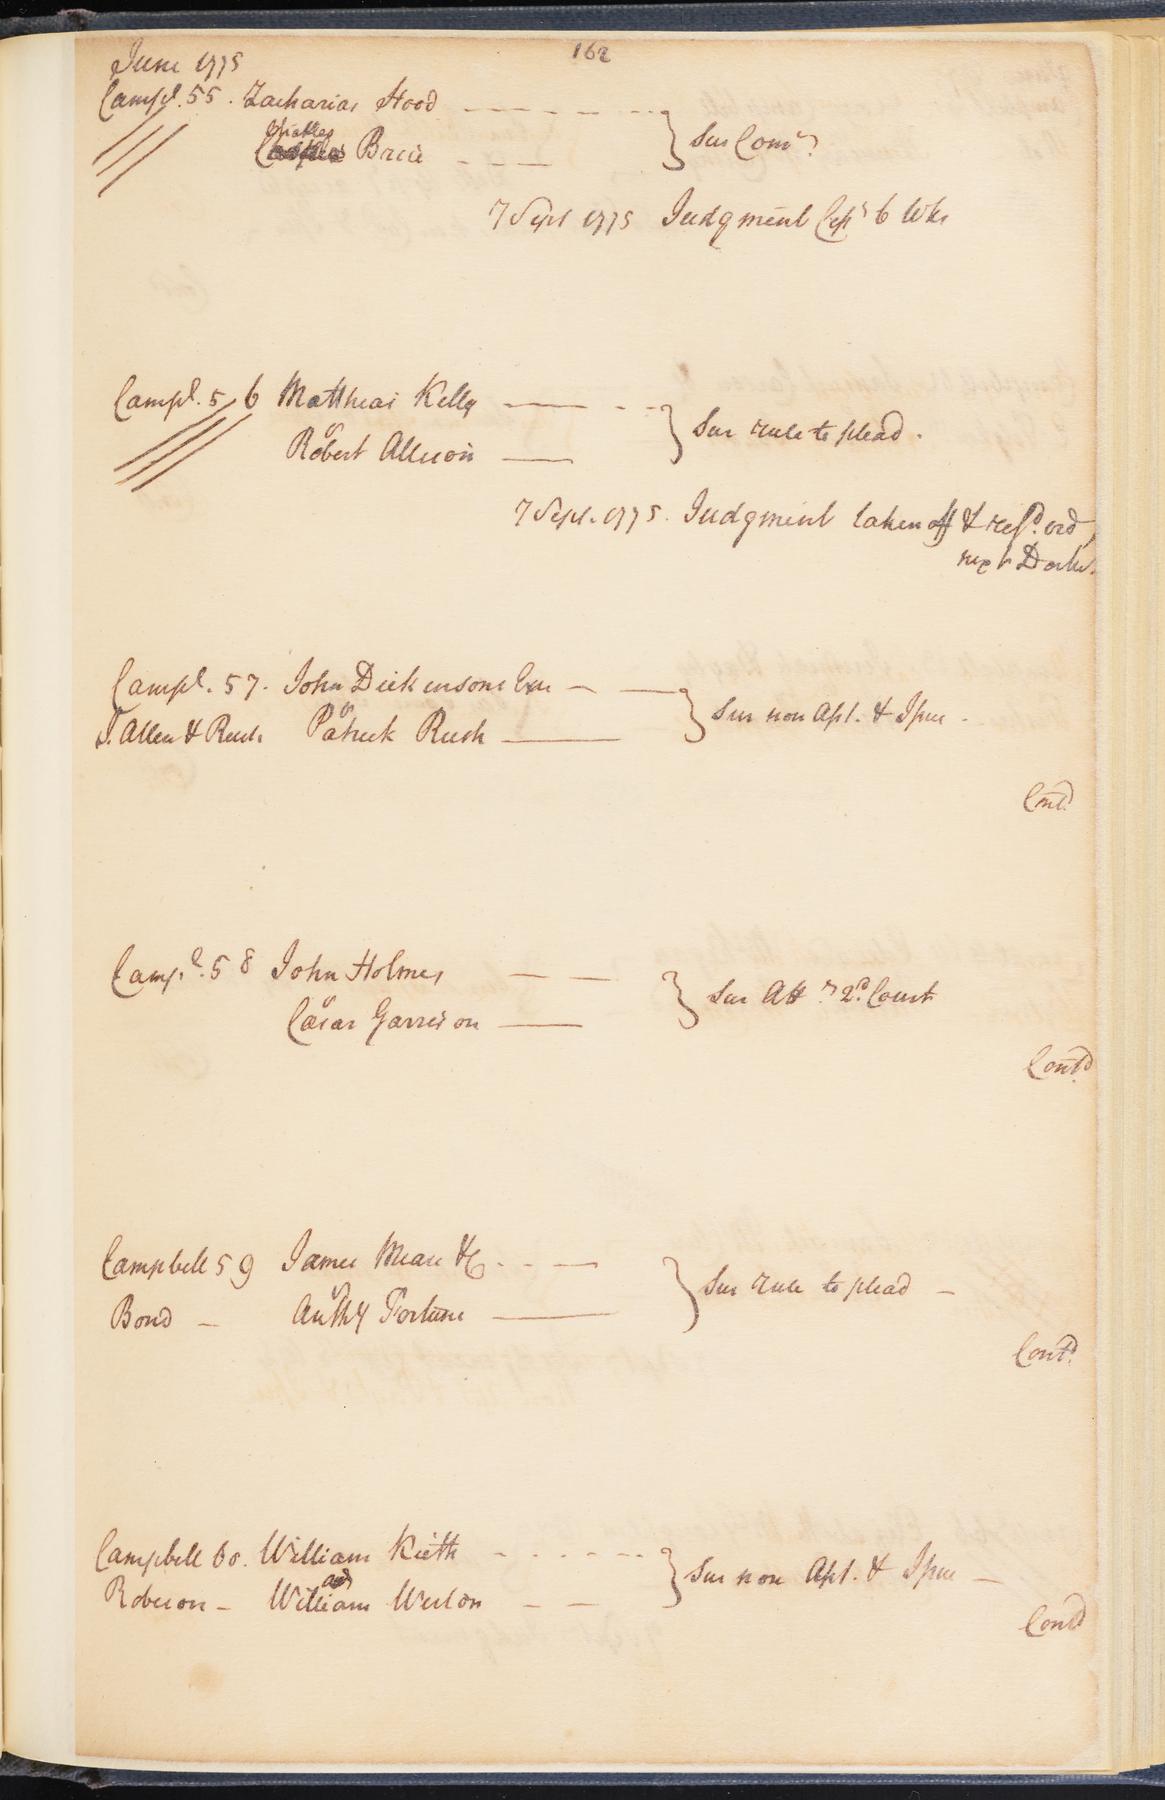 162
June 1775
Campl. 55. Zacharias Hood
Charles Brice } Sur Com.
7 Sept 1775 Judgment Cep. 6 Wks
Campl. 56 Matthias Kelly
vs
Robert Allison } Sur rule to plead.
7 Sept. 1775. Judgment taken off & refd. ord
next Docket
Campl. 57. John Dickensons Exr
vs
J. Allen & Rush Patrick Rush } Sur non Asst. & Issue
Contd
Campl. 58 John Holmes
vs
Cæsar Garrison } Sur Att. 2d. Court
Contd
Campbell 59 James Mease &Co
vs
Bond Anthy Fortune } Sur rule to plead
Contd
Campbell 60. William Kieth
and
Robeson William Weston } Sur non Asst. & Issue
Contd